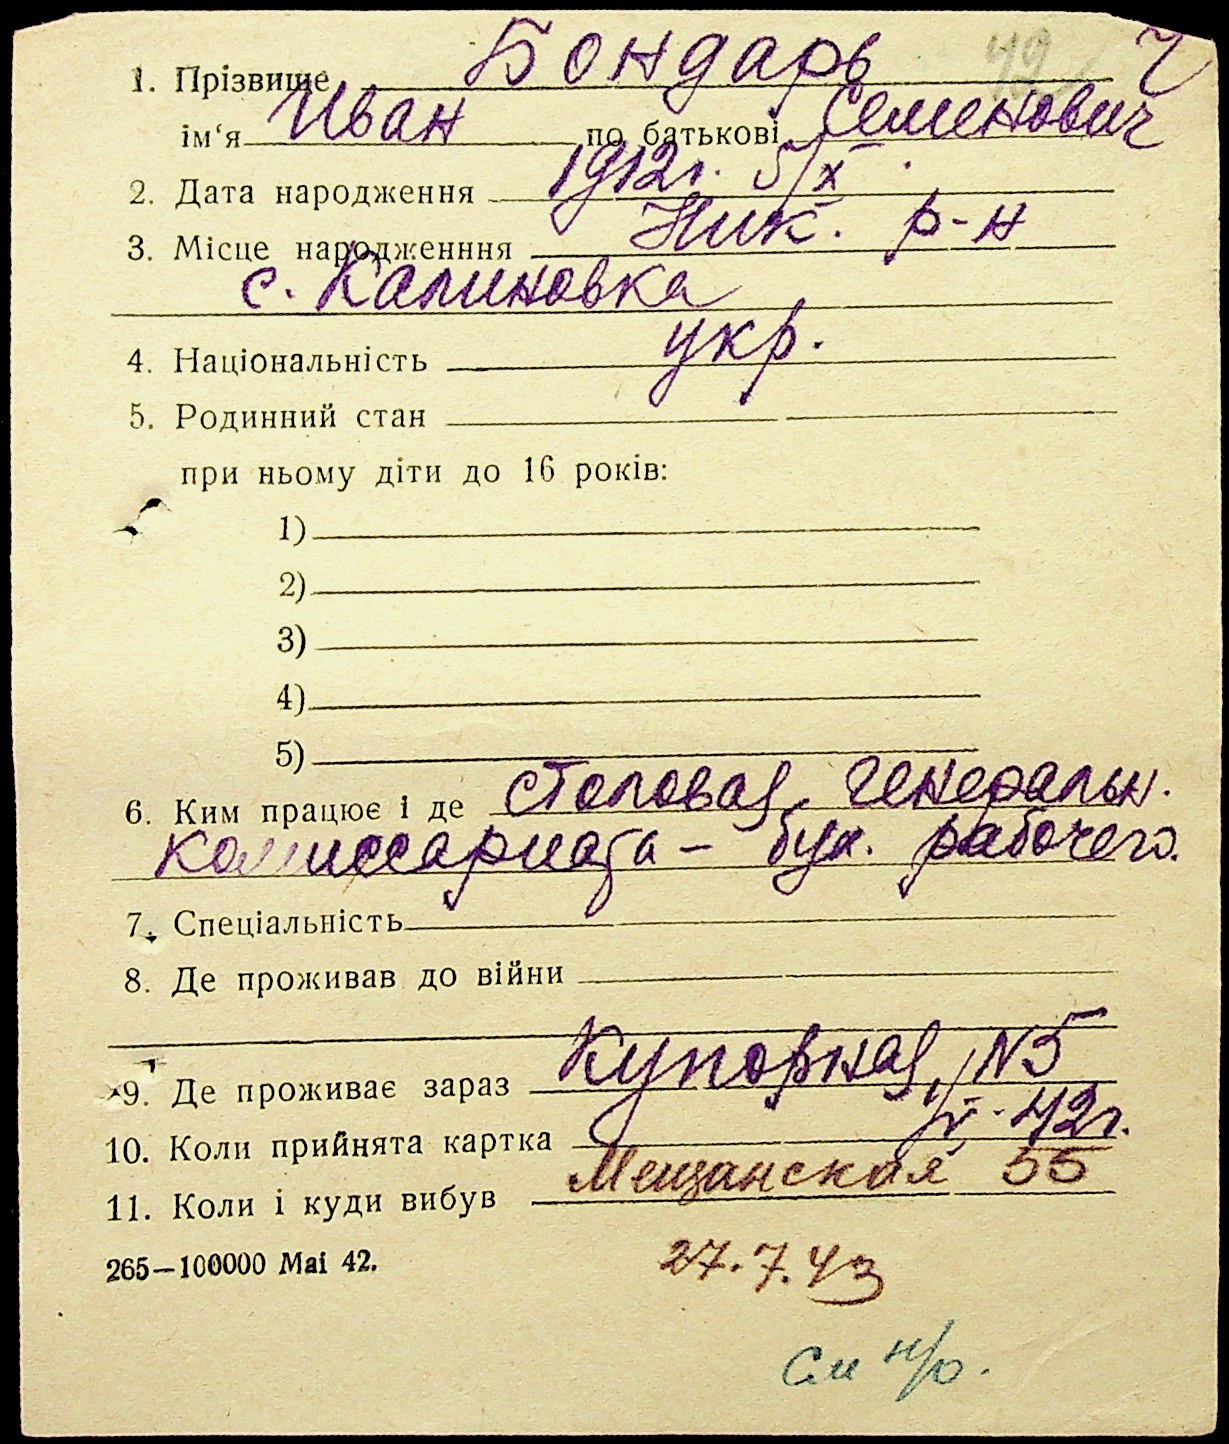 49 Ч
1. Прізвище Бондарь
ім‘я Иван по батькові Семенович
2. Дата народження 1912г. 5/X
3. Місце народженння Ник. р-н
с. Калиновка
4. Національність укр.
5. Родинний стан
при ньому діти до 16 років:
1)
2)
3)
4)
5)
6. Ким працює і де столовая генеральн.
комиссариата – бух. рабочего.
7. Спеціальність
8. Де проживав до війни
9. Де проживає зараз Купорная, N5
10. Коли прийнята картка /V-42г.
11. Коли і куди вибув Мещанская 55
265—100000 Mai 42. 27.7.43
См н/о.